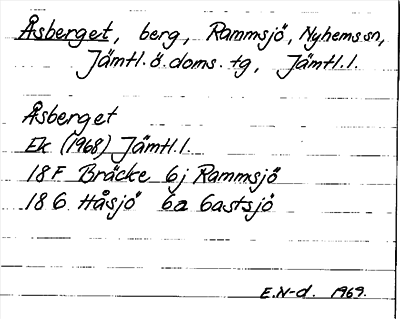 Åsberget, berg, Rammsjö, Nyhems sn,
Jämtl. ö. doms. tg, Jämtl. l.
Åsberget
Ek (1968) Jämtl. l.
18 F Bräcke 6j Rammsjö
18 G Håsjö 6a Gastsjö
E.N-d. 1969.